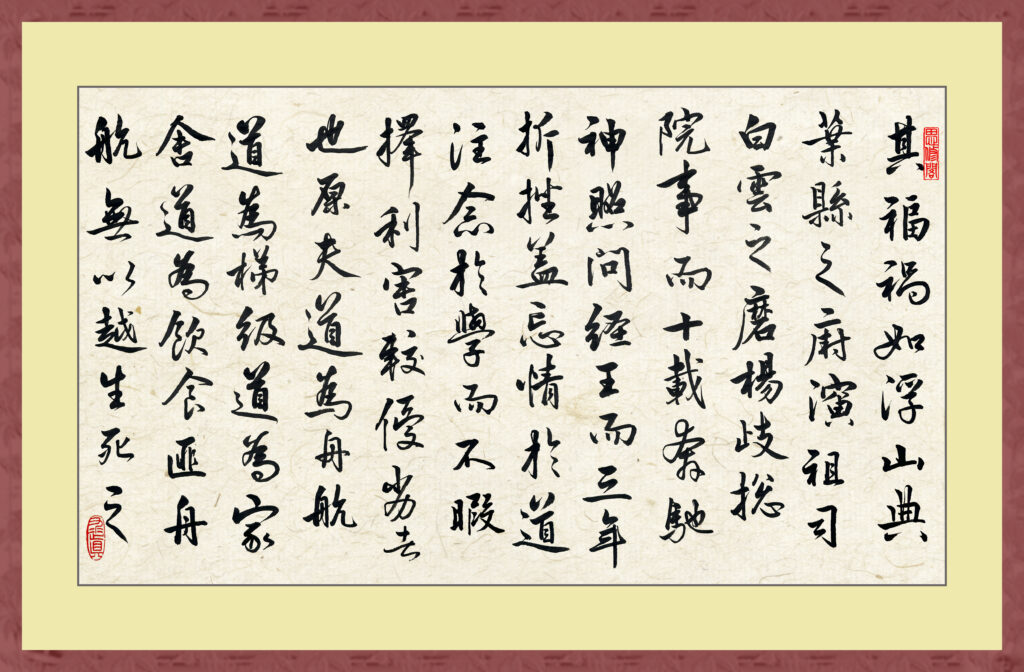 思修閣
其福禍如浮山典
葉縣之廚演祖司
白雲之磨楊歧捴
院事而十載奔馳
神照問経王而三年
折挫盖忘情於道
注念於學而不暇
擇利害較優劣者
也原夫道為舟航
道為梯級道為家
舍道為飲食匪舟
航無以越生死之